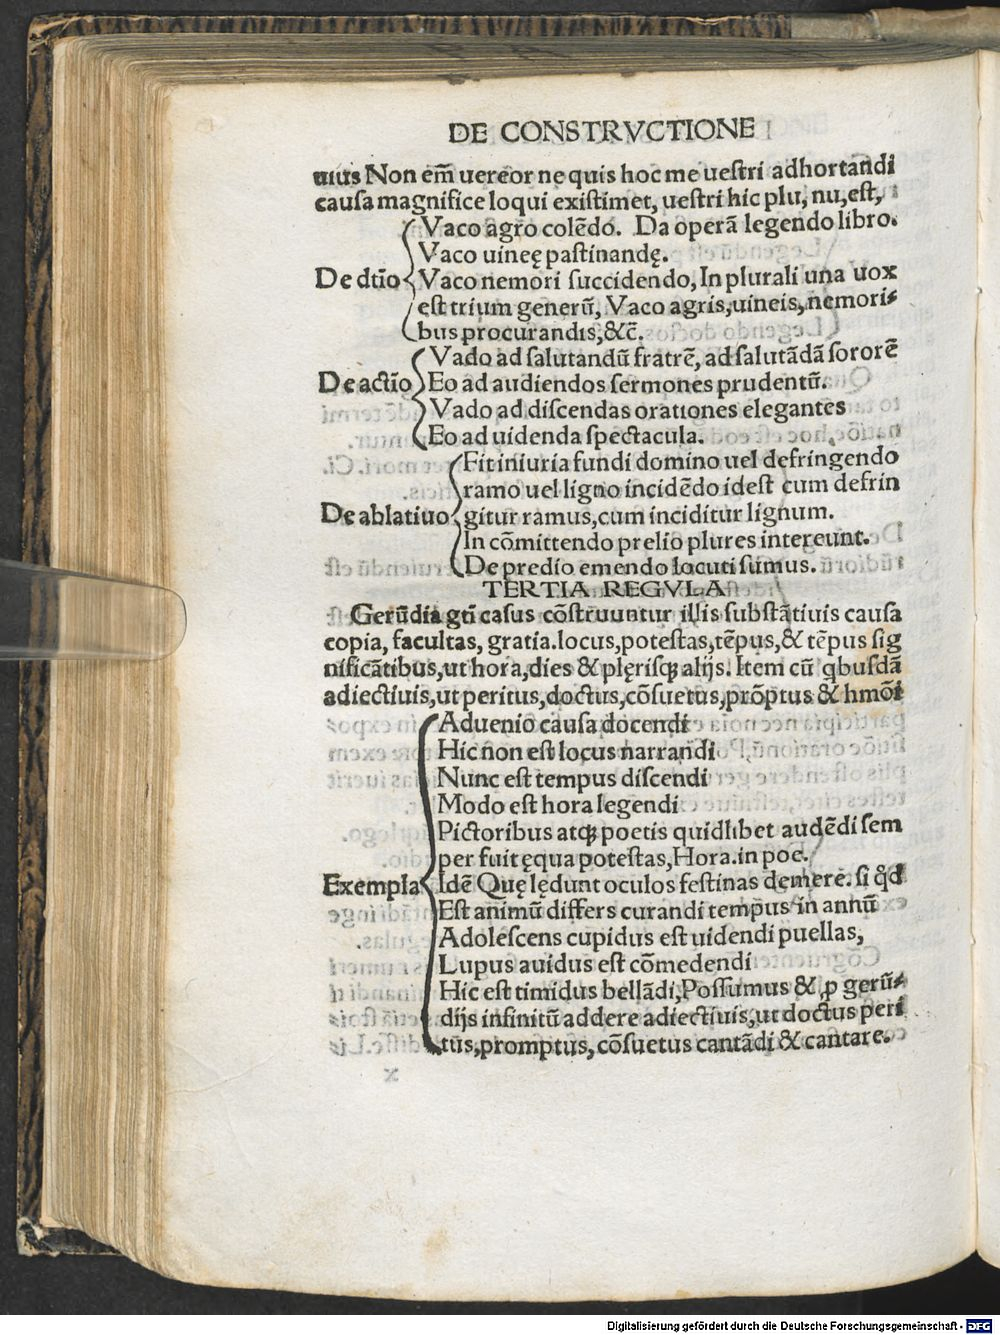 DE CONSTRVCTIONE
uius Non em̄ uereor ne quis hoc me uestri adhortādi
causa magnifice loqui existimet, uestri hic plu, nu, est,
Vaco agro colēdo. Da operā legendo libro.
Vaco uineę pastinandę.
De dtīo Vaco nemori succidendo, In plurali una uox
est trium generū, Vaco agris, uineis, nemori⸗
bus procurandis, &c̄.
Vado ad salutandū fratrē, ad salutādā sororē
De actīo Eo ad audiendos sermones prudentū.
Vado ad discendas orationes elegantes
Eo ad uidenda spectacula.
Fit iniuria fundi domino uel defringendo
ramo uel ligno incidēdo idest cum defrin
De ablatiuo gitur ramus, cum inciditur lignum.
In cōmittendo prelio plures intereunt.
De predio emendo locuti sumus.
TERTIA REGVLA
Gerūdia gtī casus cōstruuntur illis substātiuis causa
copia, facultas, gratia. locus, potestas, tēpus, & tēpus sig
nificātibus, ut hora, dies & plęrisqꝫ alijs. Item cū qbusdā
adiectiuis, ut peritus, doctus, cōsuetus, prōptus & hmōi
Aduenio causa docendi
Hic non est locus narrandi
Nunc est tempus discendi
Modo est hora legendi
Pictoribus atqꝫ poetis quidlibet audēdi sem
per fuit ęqua potestas, Hora. in poe.
Exempla Idē Quę lędunt oculos festinas demere. si qd̓
Est animū differs curandi tempus in annū
Adolescens cupidus est uidendi puellas,
Lupus auidus est cōmedendi
Hic est timidus bellādi, Possumus & ꝓ gerū⸗
dijs infinitū addere adiectiuis, ut doctus peri
tus, promptus, cōsuetus cantādi & cantare.
Digitalisierung gefördert durch die Deutsche Forschungsgemeinschaft - DFG